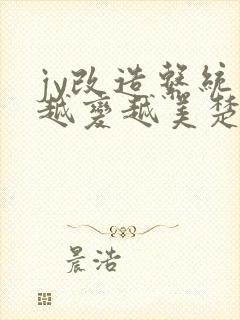 jy改造系統
越變越美楚
晨浩